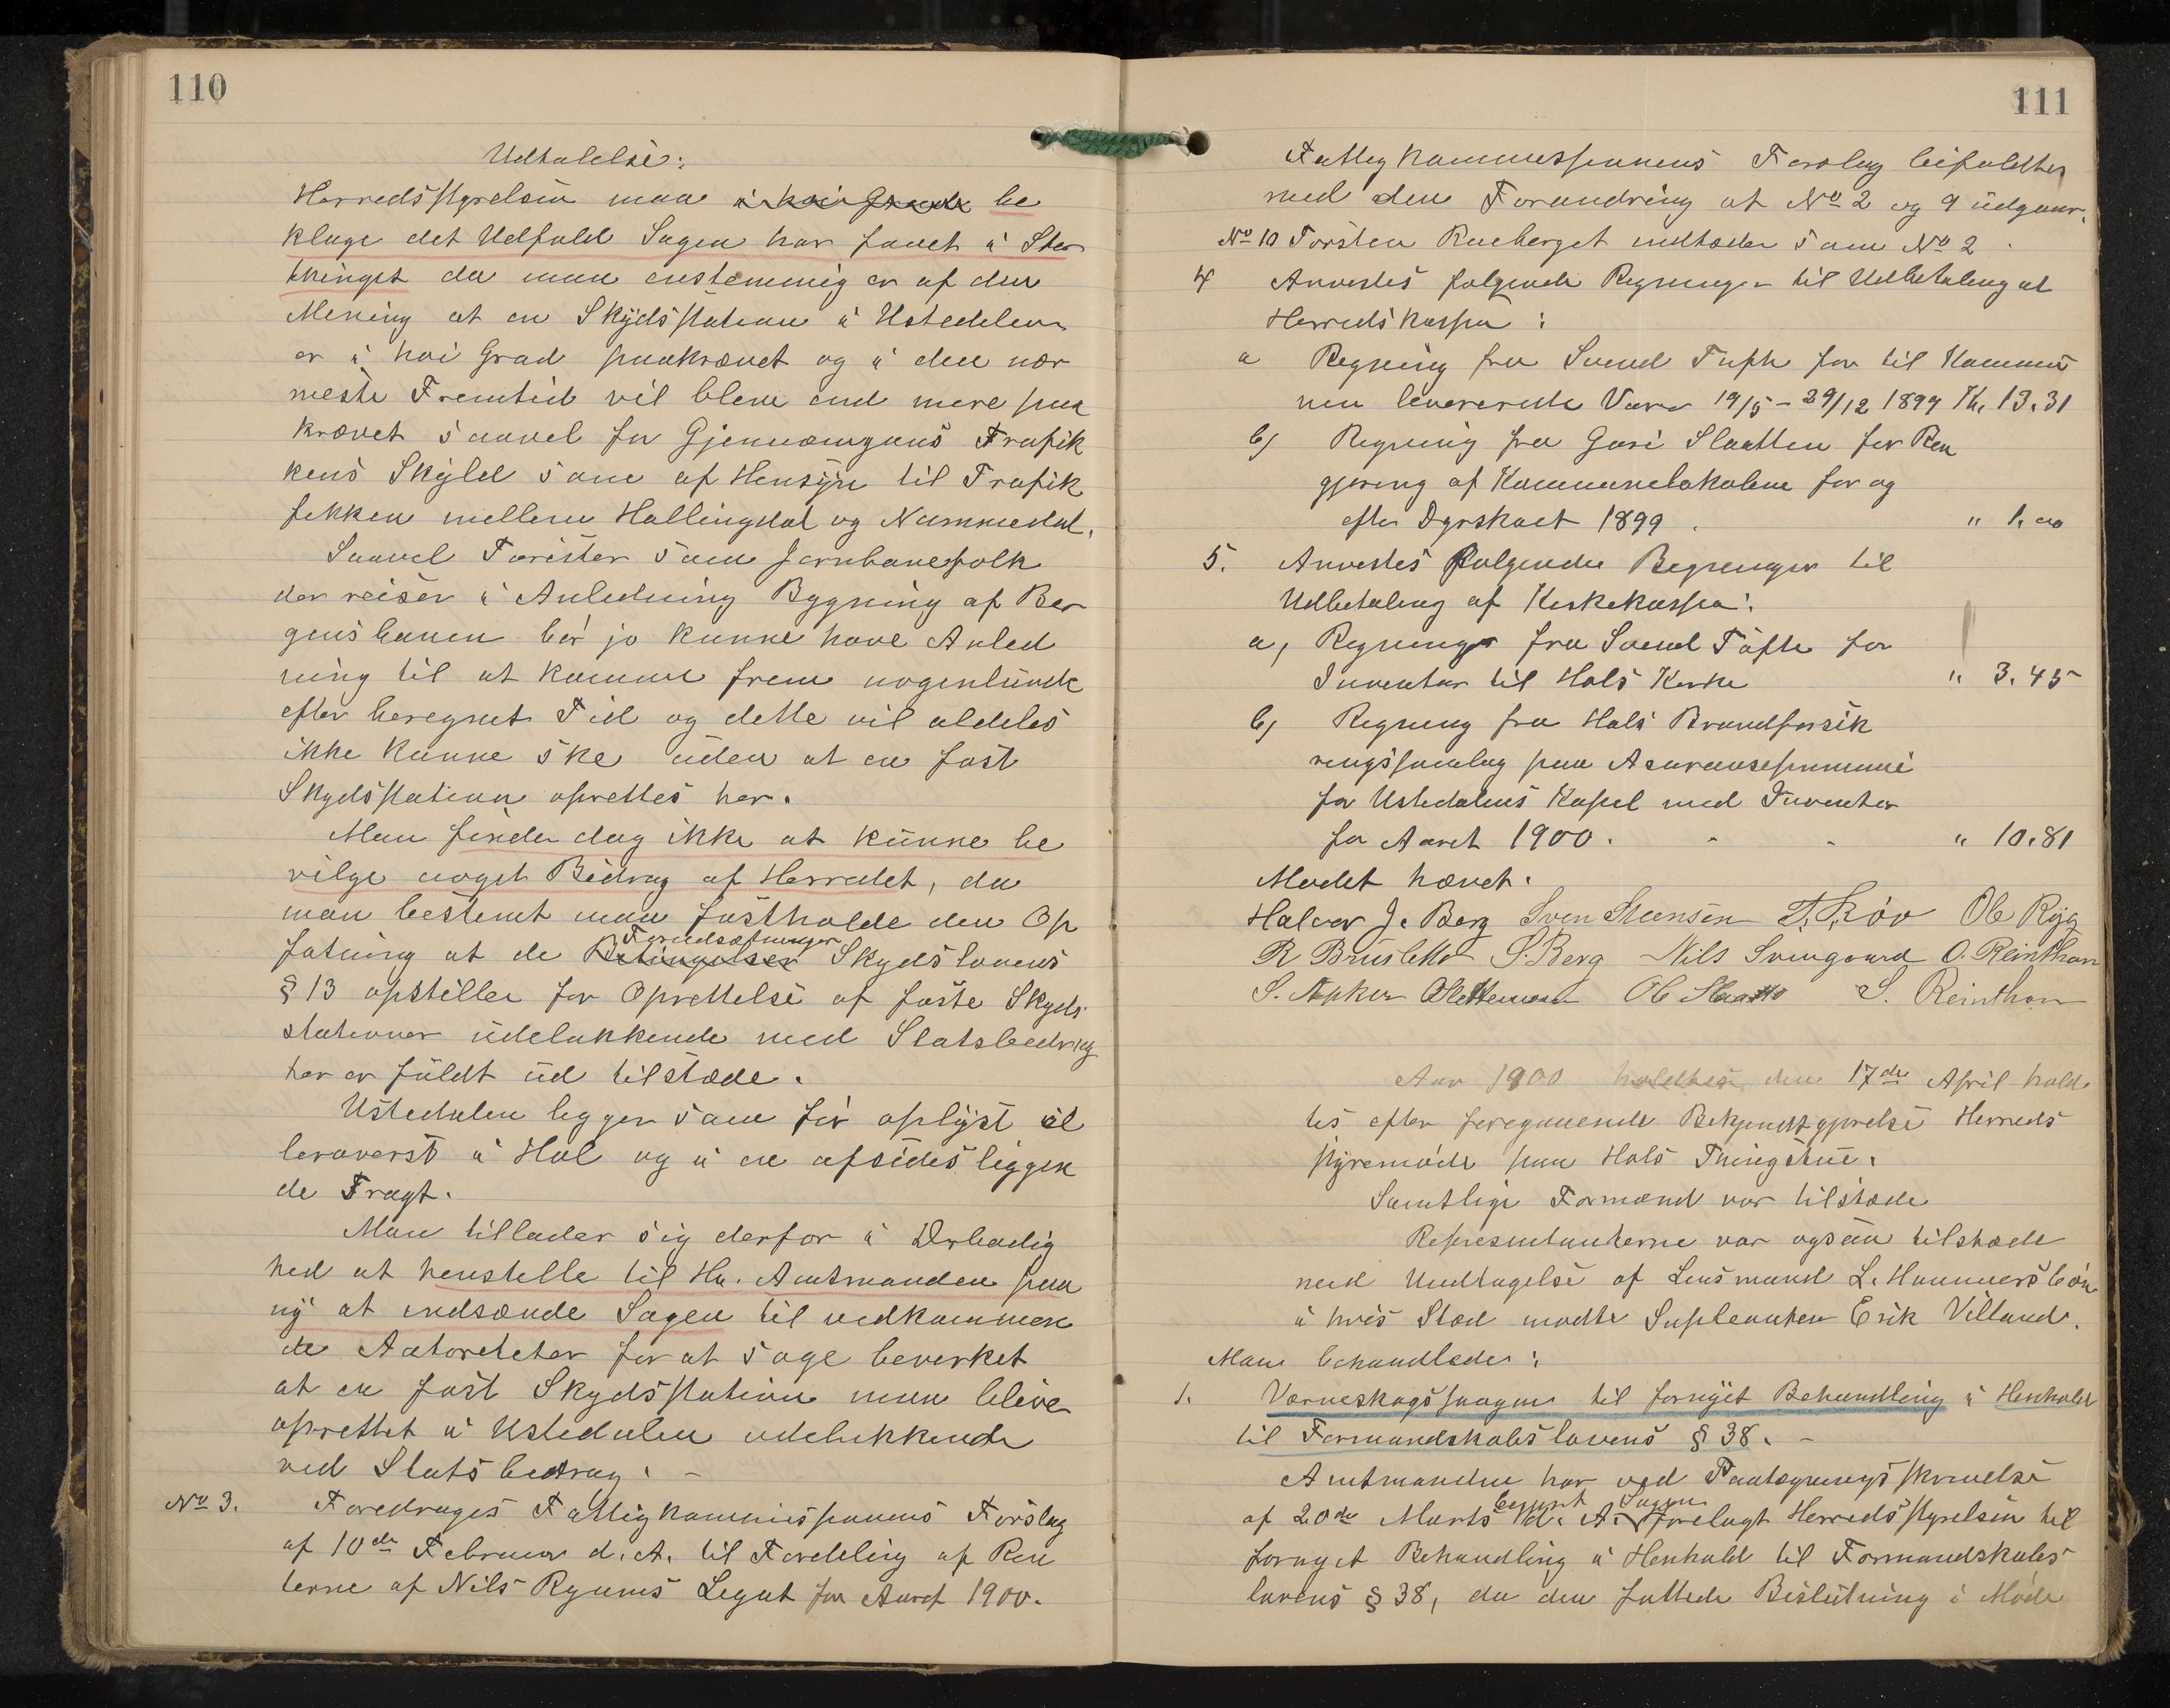 110
Udtalelse:
Herredsstyrelsen maa i høi Grad be
klage det Udfald Sagen har faaet i Stor
thinget da man enstemmig er af den
Mening at en Skydsstation i Ustedalen
er i høi Grad paakrævet og i den nær
meste Fremtid vil blive end mere paa
krævet saavel for Gjennemgangs Trafik
kens Skyld som af Hensyn til Trafik
ken mellem Hallingdal og Nummedal.
Saavel Turister som Jernbanefolk
der reiser i Anledning Bygning af Ber
gensbanen bør jo kunne have Anled
ning til at komme frem nogenlunde
efter beregnet Tid og dette vil aldeles
ikke kunne ske uden at en fast
Skydsstation oprettes her.
Man finder dog ikke at kunne be
vilge noget Bidrag af Herredet, da
man bestemt maa fastholde den Op
Forudsætninger
fatning at de Betingelser Skydslovens
§ 13 opstiller for Oprettelse af faste Skyds
stationer udelukkende med Statsbidrag
her er fuldt ud tilstæde.
Ustedalen ligger som før oplyst al
lerøverst i Hol og i en afsides liggen
de Fragt.
Man tillader sig derfor i Ærbødig
hed at henstille til Hr. Amtmanden paa
ny at indsænde Sagen til vedkommen
de Autoreteter for at søge bevirket
at en fast Skydsstation maa blive
oprettet i Ustedalen udelukkende
ved Statsbidrag. –
No 3. Foredroges Fattigkommissionens Forslag
af 10de Februar d. A. til Fordeling af Ren
terne af Nils Ryums Legat for Aaret 1900.
111
Fattigkommissionens Forslag bifaldtes
med den Forandring at No 2 og 9 udgaar.
No 10 Torsten Rueberget indtæder som No 2.
4 Anvistes følgende Regninger til Udbetaling af
Herredskassen:
a Regning fra Svend Tufte for til Kommu
nen leverede Varer 19/5 – 29/12 1899 Kr. 13.31
b) Regning fra Guri Slaatten for Ren
gjøring af Kommunelokalene for og
efter Dyrskuet 1899 . " 1.00
5. Anvistes følgende Regninger til
Udbetaling af Kirkekassen:
a, Regninger fra Svend Tufte for
Inventar til Hols Kirke " 3.45
b) Regning fra Hols Brandforsik
ringsamlag paa Asuransepræmie
for Ustedalens Kapel med Inventar
for Aaret 1900. - - " 10.81
Mødet hævet.
Halvor J. Berg Sven Steensen T. Skøv Ole Ryg
R Bruslette S. Berg Nils Svengaard O. Reinthon
Ole Slaatto S. Reinthon
Aar 1900 holdtes den 17de April hold
tes efter foregaaende Bekjendtgjørelse Herreds
styremøde paa Hols Thingstue.
Samtlige Formænd var tilstæde
Representanterne var ogsaa tilstæde
med Undtagelse af Lensmand L. Hammersbøen
i hvis Sted mødte Supleanten Erik Villand.
Man behandlede:
1. Værneskogssagen til fornyet Behandling i Henhold
til Formandskabslovens § 38. –
Amtmanden har ved Paategningsskrivelse
begjært Sagen
af 20de Marts d. A. forelagt Herredsstyrelsen til
fornyet Behandling i Henhold til Formandskabs
lovens § 38, da den fattede Beslutning i Møde